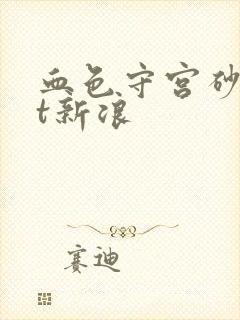 血色守宫砂
t新浪
赛迪